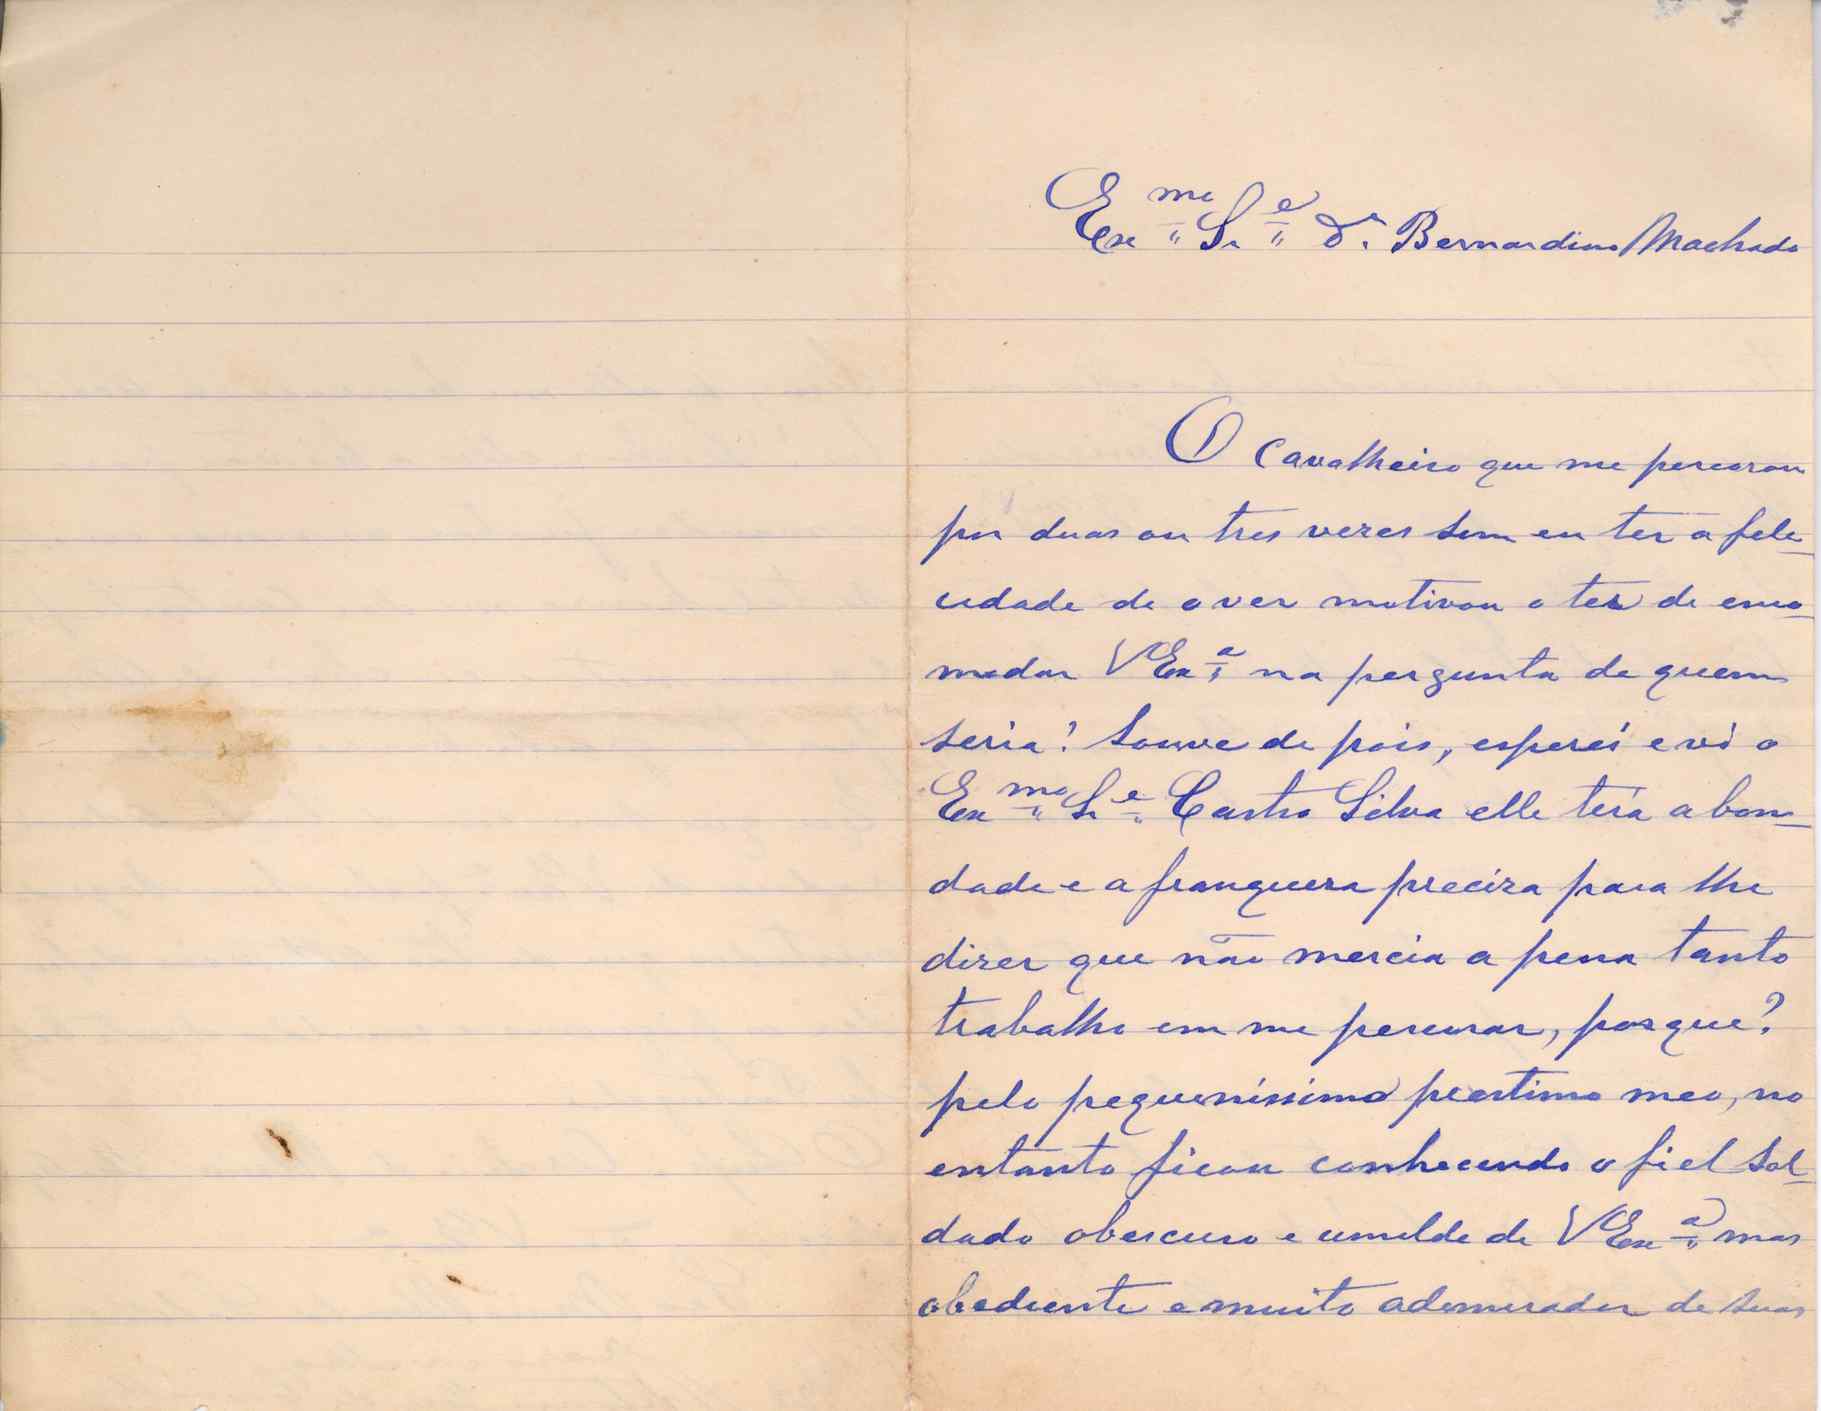 Exmo Sr Dr Bernardino Machado
O Cavalheiro que me percorou
por duas ou tres vezes sem eu ter a fele-
cidade de o ver motivou o ter de enco-
modar VExa na pergunta de quem
seria! Souve de pois, esperei e vi o
Exmo Sr Castro Silva elle terá a bon-
dade e a franqueza preciza para lhe
dizer que não mercia a pena tanto
trabalho em me percurar, porque?
pelo pequeníssimo prestimo meo, no
entanto ficou conhecendo o fiel Sol-
dado obescuro e umelde de VExa mas
obediente e muito ademerador de suas